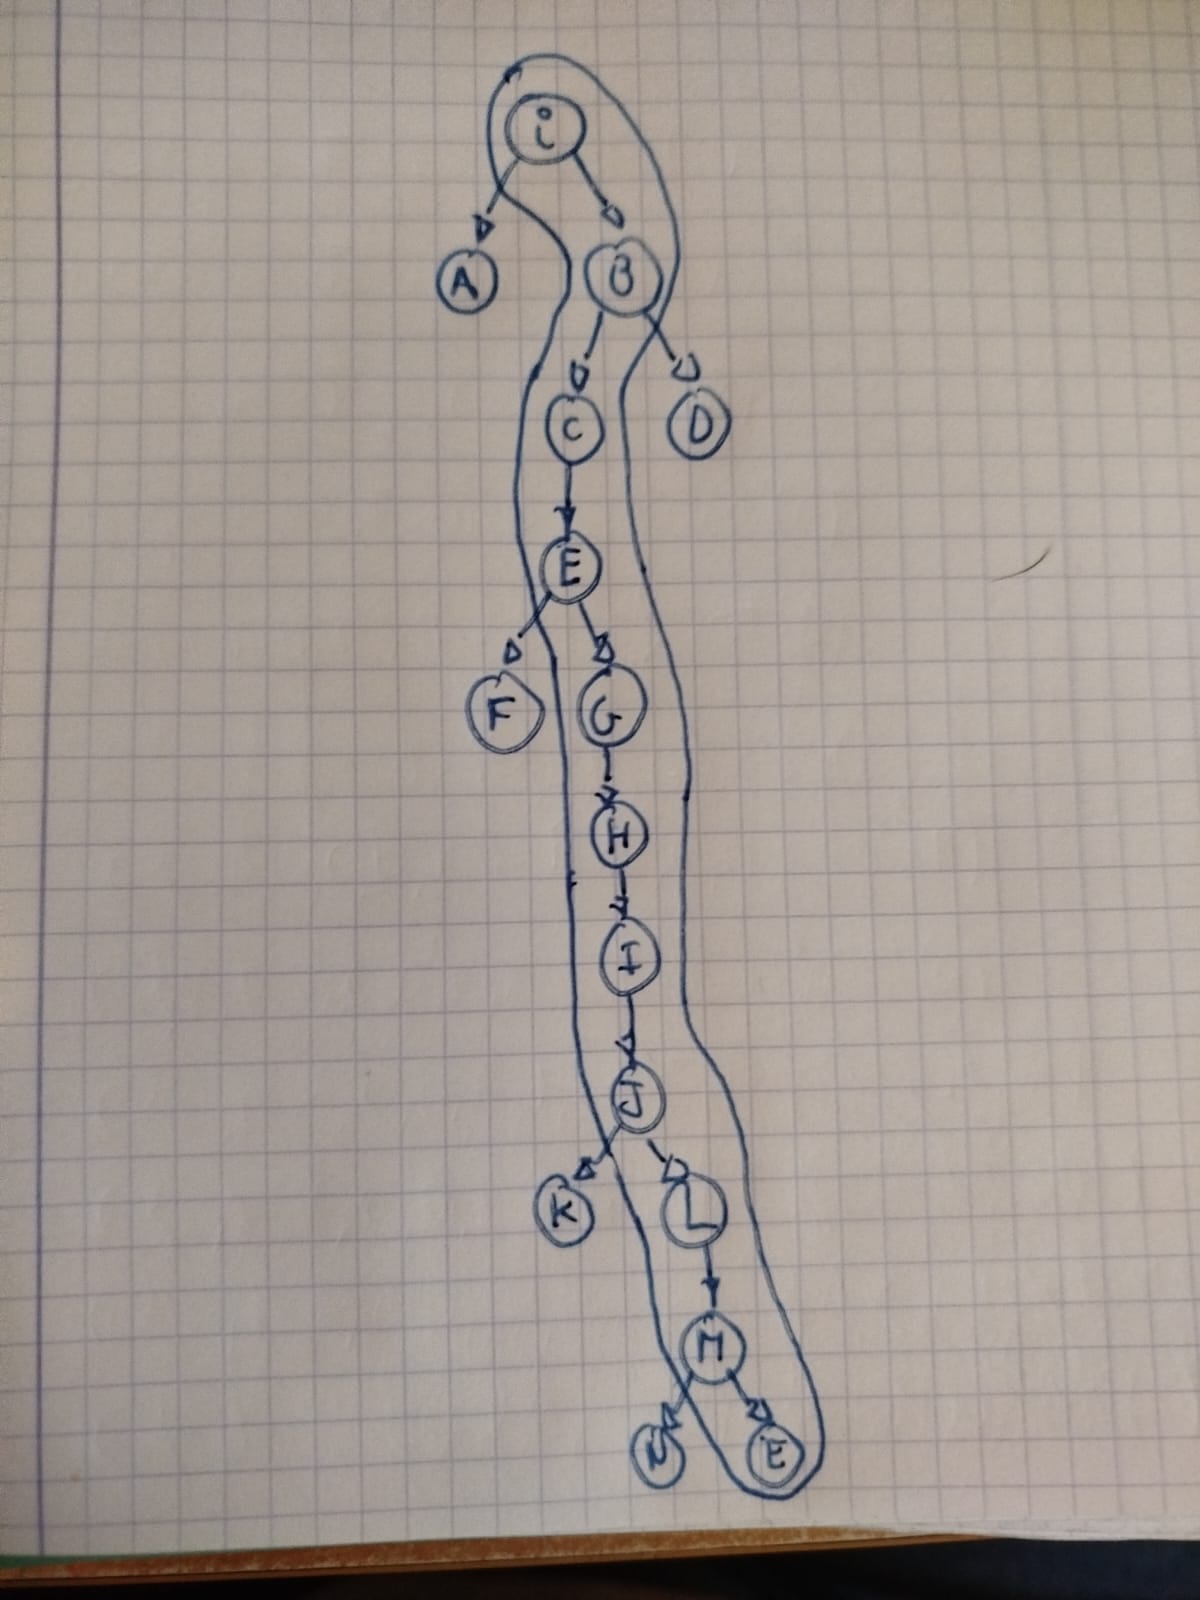 i
A B
C D
E
F G
H
I
J
K L
M
N E